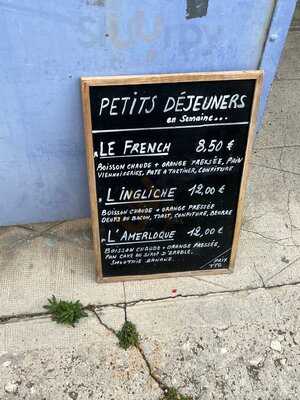 PETITS DÉJEUNERS
en Semaine...
LE FRENCH 8,50 €
BOISSON CHAUDE + ORANGE PRESSÉE, PAIN
VIENNOISERIES, PATE A TARTINER, CONFITURE
L'INGLICHE 12,00 €
BOISSON CHAUDE + ORANGE PRESSÉE
OEUFS OU BACON, TOAST, CONFITURE, BEURRE
L'AMERLOQUE 12,00 €
BOISSON CHAUDE + ORANGE PRESSÉE,
PAN CAKE AU SIROP D'ERABLE,
SMOOTHIE BANANE.
PRIX